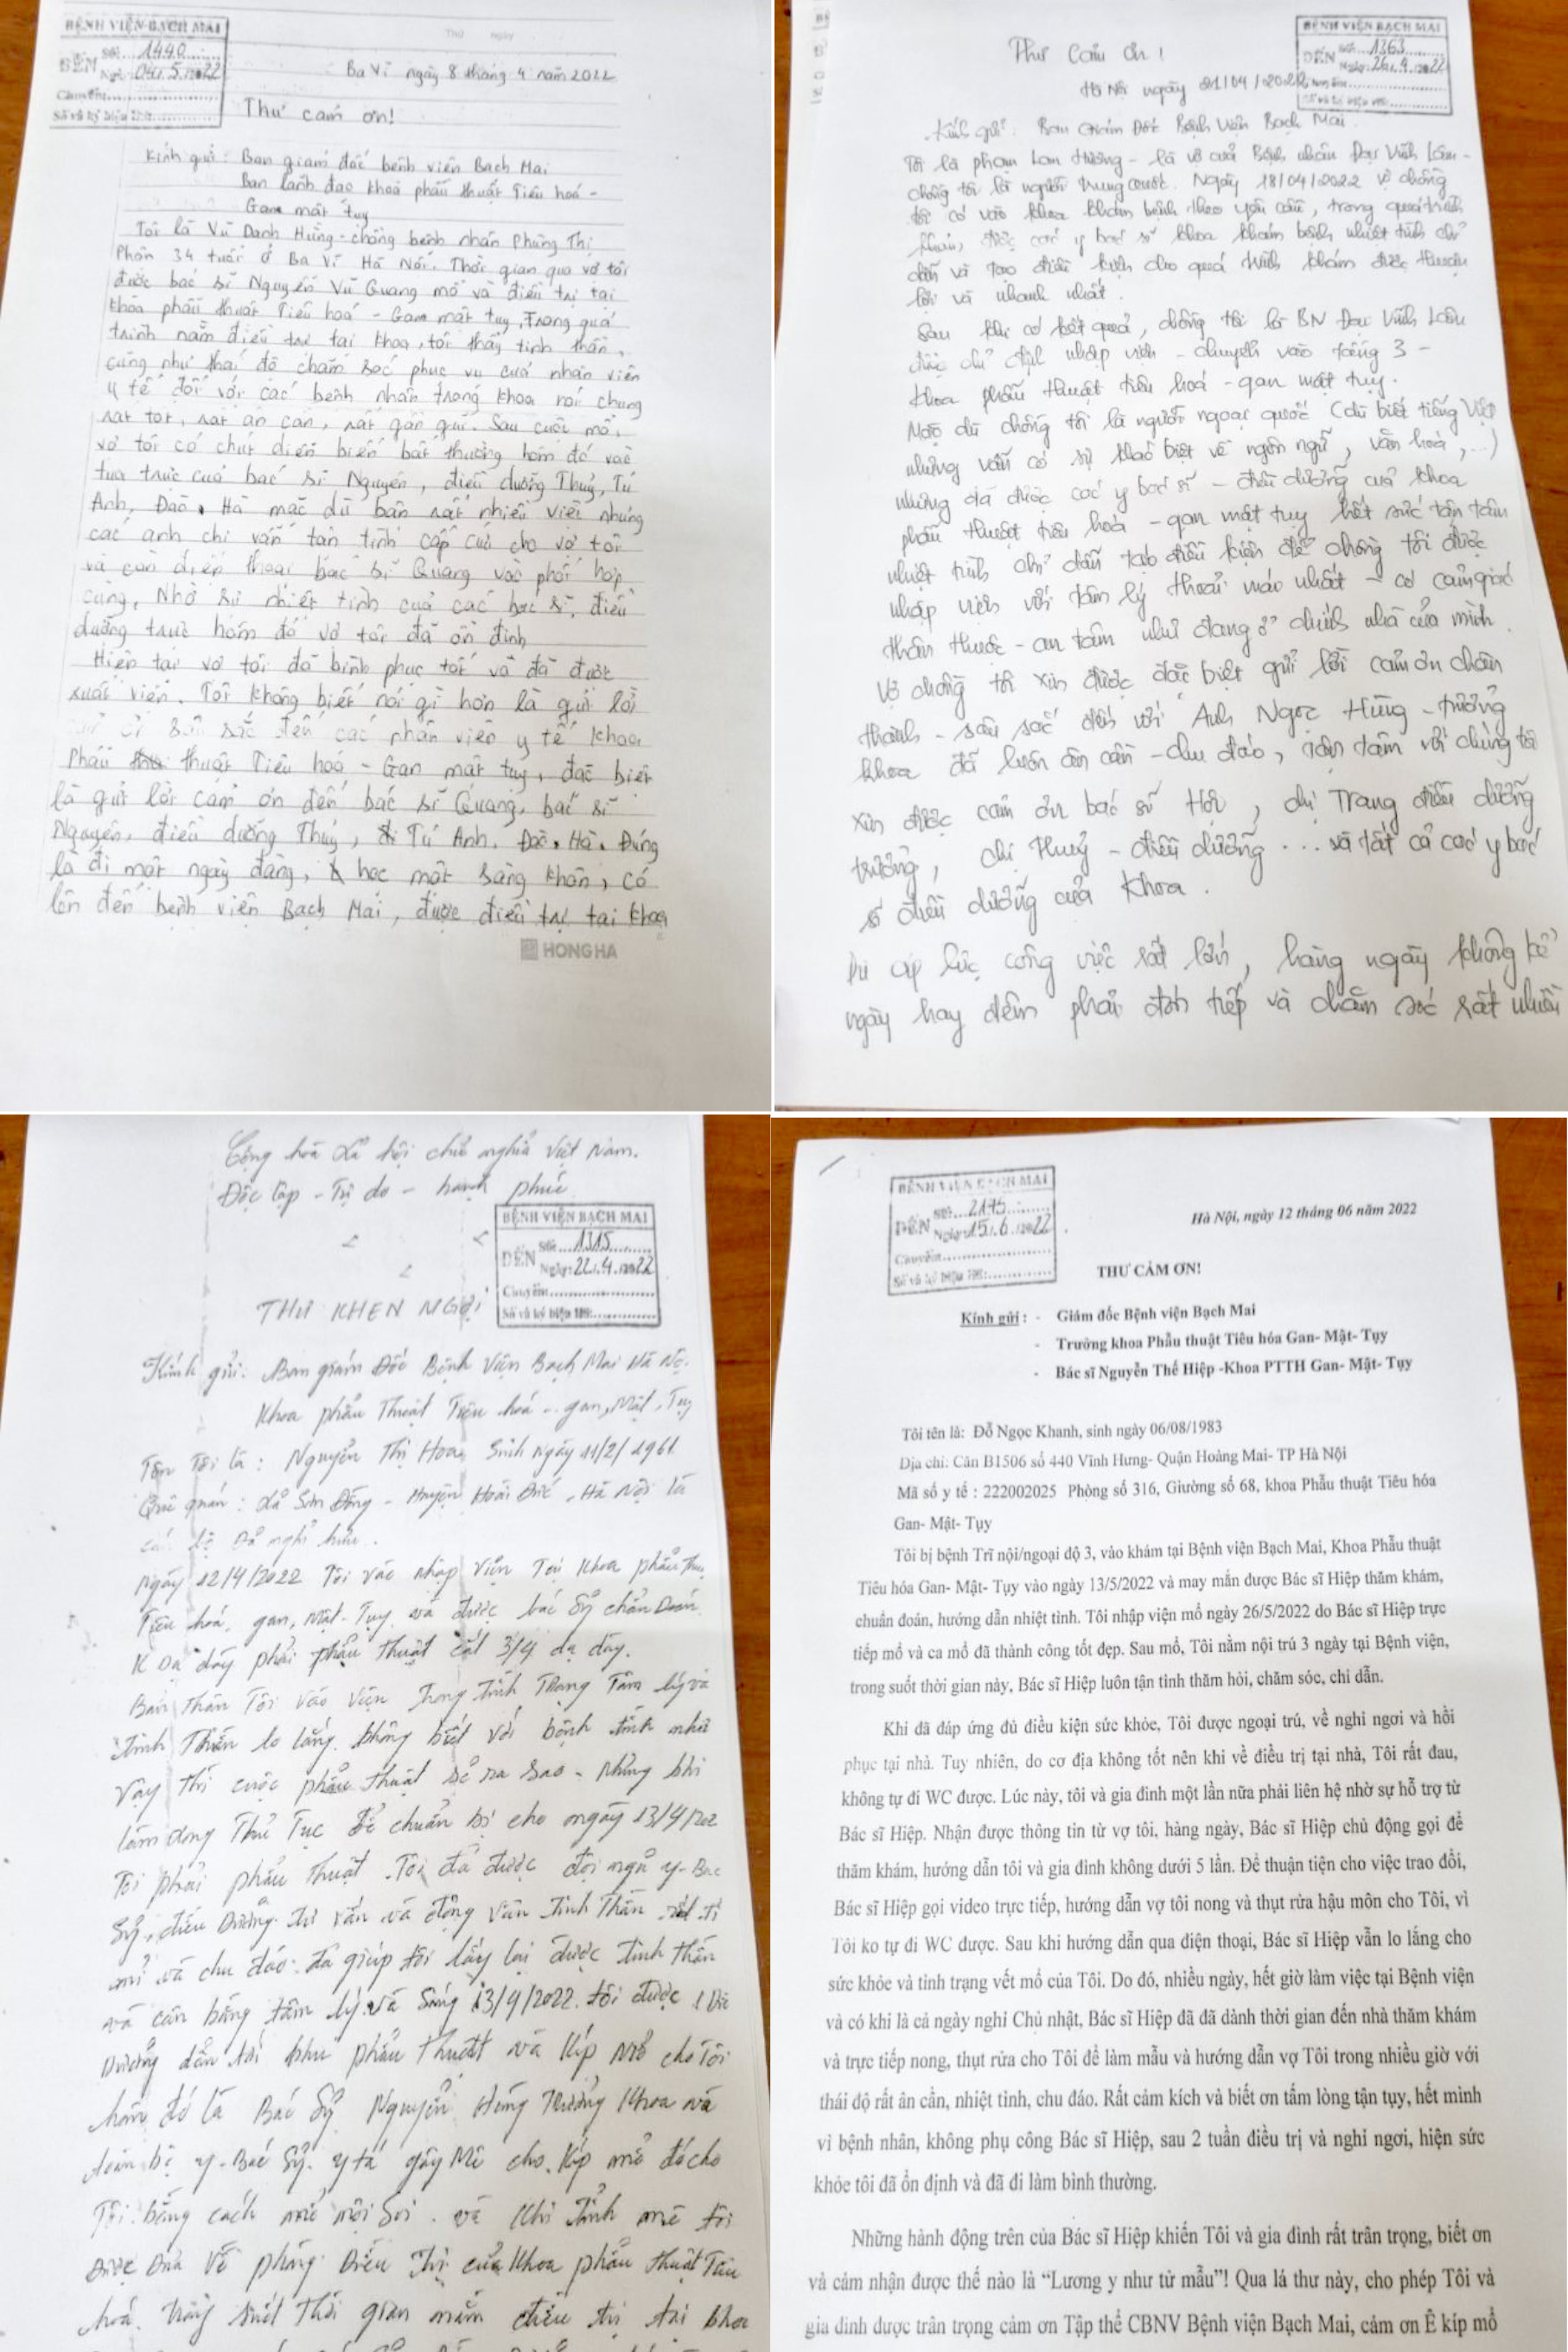 BỆNH VIỆN BẠCH MAI
ĐẾN Số: 1440
Ngày: 04.5.2022
Chuyển:
Số và ký hiệu HS:
Thứ ngày
Ba Vì ngày 8 tháng 4 năm 2022
Thư cám ơn!
Kính gửi: Ban giám đốc bệnh viện Bạch Mai
Ban lãnh đạo khoa phẫu thuật Tiêu hoá -
Gan mật tuỵ
Tôi là Vũ Danh Hưng - chồng bệnh nhân Phùng Thị
Phần 34 tuổi ở Ba Vì Hà Nội. Thời gian qua vợ tôi
được bác sĩ Nguyễn Vũ Quang mổ và điều trị tại
khoa phẫu thuật Tiêu hoá - Gan mật tuỵ, Trong quá
trình nằm điều trị tại khoa, tôi thấy tinh thần,
cũng như thái độ chăm sóc phục vụ của nhân viên
y tế đối với các bệnh nhân trong khoa nói chung
rất tốt, rất ân cần, rất gần gũi. Sau cuộc mổ,
vợ tôi có chút diễn biến bất thường hôm đó vào
tua trực của bác sĩ Nguyên, điều dưỡng Thuỷ, Tú
Anh, Đào, Hà mặc dù bận rất nhiều việc nhưng
các anh chị vẫn tận tình cấp cứu cho vợ tôi
và còn điện thoại bác sĩ Quang vào phối hợp
cùng, Nhờ sự nhiệt tình của các bác sĩ, điều
dưỡng trực hôm đó vợ tôi đã ổn định
Hiện tại vợ tôi đã bình phục tốt và đã được
xuất viện. Tôi không biết nói gì hơn là gửi lời
sâu sắc đến các nhân viên y tế khoa
Phẫu thuật Tiêu hoá - Gan mật tuỵ, đặc biệt
là gửi lời cám ơn đến bác sĩ Quang, bác sĩ
Nguyên, điều dưỡng Thuỷ, Tú Anh, Đào, Hà. Đúng
là đi một ngày đàng, học một sàng khôn, có
lên đến bệnh viện Bạch Mai, được điều trị tại khoa
HONG HA
BỆNH VIỆN BẠCH MAI
ĐẾN Số: 1363
Ngày: 26.4.2022
Số và ký hiệu HS:
Thư cảm ơn!
Hà Nội ngày 21/04/2022
Kính gửi: Ban Giám Đốc Bệnh Viện Bạch Mai.
Tôi là phạm Lan Hương - là vợ của Bệnh nhân Đại Vĩnh Lâm -
chồng tôi là người trung quốc. Ngày 18/04/2022 vợ chồng
tôi có vào khoa khám bệnh theo yêu cầu, trong quá trình
khám, được các y bác sĩ khoa khám bệnh nhiệt tình chỉ
dẫn và tạo điều kiện cho quá trình khám được thuận
lợi và nhanh nhất.
Sau khi có kết quả, chồng tôi là BN Đại Vĩnh Lâm
được chỉ định nhập viện - chuyển vào tầng 3 -
khoa phẫu thuật tiêu hoá - gan mật tuỵ.
Mặc dù chồng tôi là người ngoại quốc (dù biết tiếng Việt
nhưng vẫn có sự khác biệt về ngôn ngữ, văn hoá,...)
nhưng đã được các y bác sĩ - điều dưỡng của khoa
phẫu thuật tiêu hoá - gan mật tuỵ hết sức tận tâm
nhiệt tình chỉ dẫn tạo điều kiện để chồng tôi được
nhập viện với tâm lý thoải mái nhất - có cảm giác
thân thuộc - an tâm như đang ở chính nhà của mình.
Vợ chồng tôi xin được đặc biệt gửi lời cảm ơn chân
thành - sâu sắc đến với Anh Ngọc Hùng - trưởng
khoa đã luôn ân cần - chu đáo, tận tâm với chúng tôi
xin được cảm ơn bác sĩ, chị Trang điều dưỡng
trưởng, chị Thuỷ - điều dưỡng ... và tất cả các y bác
sĩ điều dưỡng của khoa.
Dù áp lực công việc rất lớn, hàng ngày không kể
ngày hay đêm phải đón tiếp và chăm sóc rất nhiều
Cộng hòa Xã hội chủ nghĩa Việt Nam.
Độc lập - Tự do - hạnh phúc
BỆNH VIỆN BẠCH MAI
ĐẾN Số: 1315
Ngày: 22.4.2022
Chuyển:
Số và ký hiệu HS:
THƯ KHEN NGỢI
Kính gửi: Ban giám Đốc Bệnh Viện Bạch Mai Hà Nội
Khoa phẫu Thuật Tiêu hoá - gan, Mật, Tụy
Tên Tôi là: Nguyễn Thị Hoa, Sinh ngày 11/2/1961
Quê quán: Xã Sơn Đồng - Huyện Hoài Đức, Hà Nội là
cán bộ Đã nghỉ hưu.
Ngày 12/4/2022 Tôi vào nhập viện Tại Khoa phẫu thuật
Tiêu hoá, gan, mật - Tụy và được bác Sỹ chẩn Đoán
K Dạ dày phải phẫu thuật cắt 3/4 dạ dày.
Bản thân Tôi vào viện trong tình Trạng Tâm lý và
tinh Thần lo lắng. không biết với bệnh tình như
vậy thì cuộc phẫu thuật sẽ ra sao - Nhưng khi
làm dong Thủ Tục Để chuẩn bị cho ngày 13/4/202
Tôi phải phẫu thuật. Tôi đã được đội ngũ y-Bác
Sỹ, điều Dưỡng. tư vấn và động viên tinh Thần rất tỉ
mỉ và chu đáo. đã giúp tôi lấy lại được tinh thần
và cân bằng tâm lý và Sáng 13/4/2022. tôi được
Dưỡng dẫn tới khu phẫu Thuật và Kíp mổ cho Tôi
hôm đó là Bác Sỹ Nguyễn Hùng Trưởng Khoa và
toàn bộ y-Bác Sỹ. y tá gây Mê cho Kíp mổ đó cho
Tôi bằng cách mổ nội Soi. và Khi Tỉnh mê tôi
Được Đưa Về phòng Điều Trị của Khoa phẫu thuật Tiêu
hoá. Trong suốt Thời gian nằm điều trị tại khoa
BỆNH VIỆN BẠCH MAI
ĐẾN Số: 2195
Ngày: 15.6.2022
Chuyển:
Số và ký hiệu HS:
Hà Nội, ngày 12 tháng 06 năm 2022
THƯ CẢM ƠN!
Kính gửi : - Giám đốc Bệnh viện Bạch Mai
- Trưởng khoa Phẫu thuật Tiêu hóa Gan- Mật- Tụy
- Bác sĩ Nguyễn Thế Hiệp -Khoa PTTH Gan- Mật- Tụy
Tôi tên là: Đỗ Ngọc Khanh, sinh ngày 06/08/1983
Địa chỉ: Căn B1506 số 440 Vĩnh Hưng- Quận Hoàng Mai- TP Hà Nội
Mã số y tế : 222002025 Phòng số 316, Giường số 68, khoa Phẫu thuật Tiêu hóa
Gan- Mật- Tụy
Tôi bị bệnh Trĩ nội/ngoại độ 3, vào khám tại Bệnh viện Bạch Mai, Khoa Phẫu thuật
Tiêu hóa Gan- Mật- Tụy vào ngày 13/5/2022 và may mắn được Bác sĩ Hiệp thăm khám,
chuẩn đoán, hướng dẫn nhiệt tình. Tôi nhập viện mổ ngày 26/5/2022 do Bác sĩ Hiệp trực
tiếp mổ và ca mổ đã thành công tốt đẹp. Sau mổ, Tôi nằm nội trú 3 ngày tại Bệnh viện,
trong suốt thời gian này, Bác sĩ Hiệp luôn tận tình thăm hỏi, chăm sóc, chỉ dẫn.
Khi đã đáp ứng đủ điều kiện sức khỏe, Tôi được ngoại trú, về nghỉ ngơi và hồi
phục tại nhà. Tuy nhiên, do cơ địa không tốt nên khi về điều trị tại nhà, Tôi rất đau,
không tự đi WC được. Lúc này, tôi và gia đình một lần nữa phải liên hệ nhờ sự hỗ trợ từ
Bác sĩ Hiệp. Nhận được thông tin từ vợ tôi, hàng ngày, Bác sĩ Hiệp chủ động gọi để
thăm khám, hướng dẫn tôi và gia đình không dưới 5 lần. Để thuận tiện cho việc trao đổi,
Bác sĩ Hiệp gọi video trực tiếp, hướng dẫn vợ tôi nong và thụt rửa hậu môn cho Tôi, vì
Tôi ko tự đi WC được. Sau khi hướng dẫn qua điện thoại, Bác sĩ Hiệp vẫn lo lắng cho
sức khỏe và tình trạng vết mổ của Tôi. Do đó, nhiều ngày, hết giờ làm việc tại Bệnh viện
và có khi là cả ngày nghỉ Chủ nhật, Bác sĩ Hiệp đã đã dành thời gian đến nhà thăm khám
và trực tiếp nong, thụt rửa cho Tôi để làm mẫu và hướng dẫn vợ Tôi trong nhiều giờ với
thái độ rất ân cần, nhiệt tình, chu đáo. Rất cảm kích và biết ơn tấm lòng tận tụy, hết mình
vì bệnh nhân, không phụ công Bác sĩ Hiệp, sau 2 tuần điều trị và nghỉ ngơi, hiện sức
khỏe tôi đã ổn định và đã đi làm bình thường.
Những hành động trên của Bác sĩ Hiệp khiến Tôi và gia đình rất trân trọng, biết ơn
và cảm nhận được thế nào là “Lương y như từ mẫu”! Qua lá thư này, cho phép Tôi và
gia đình được trân trọng cảm ơn Tập thể CBNV Bệnh viện Bạch Mai, cảm ơn Ê kíp mổ